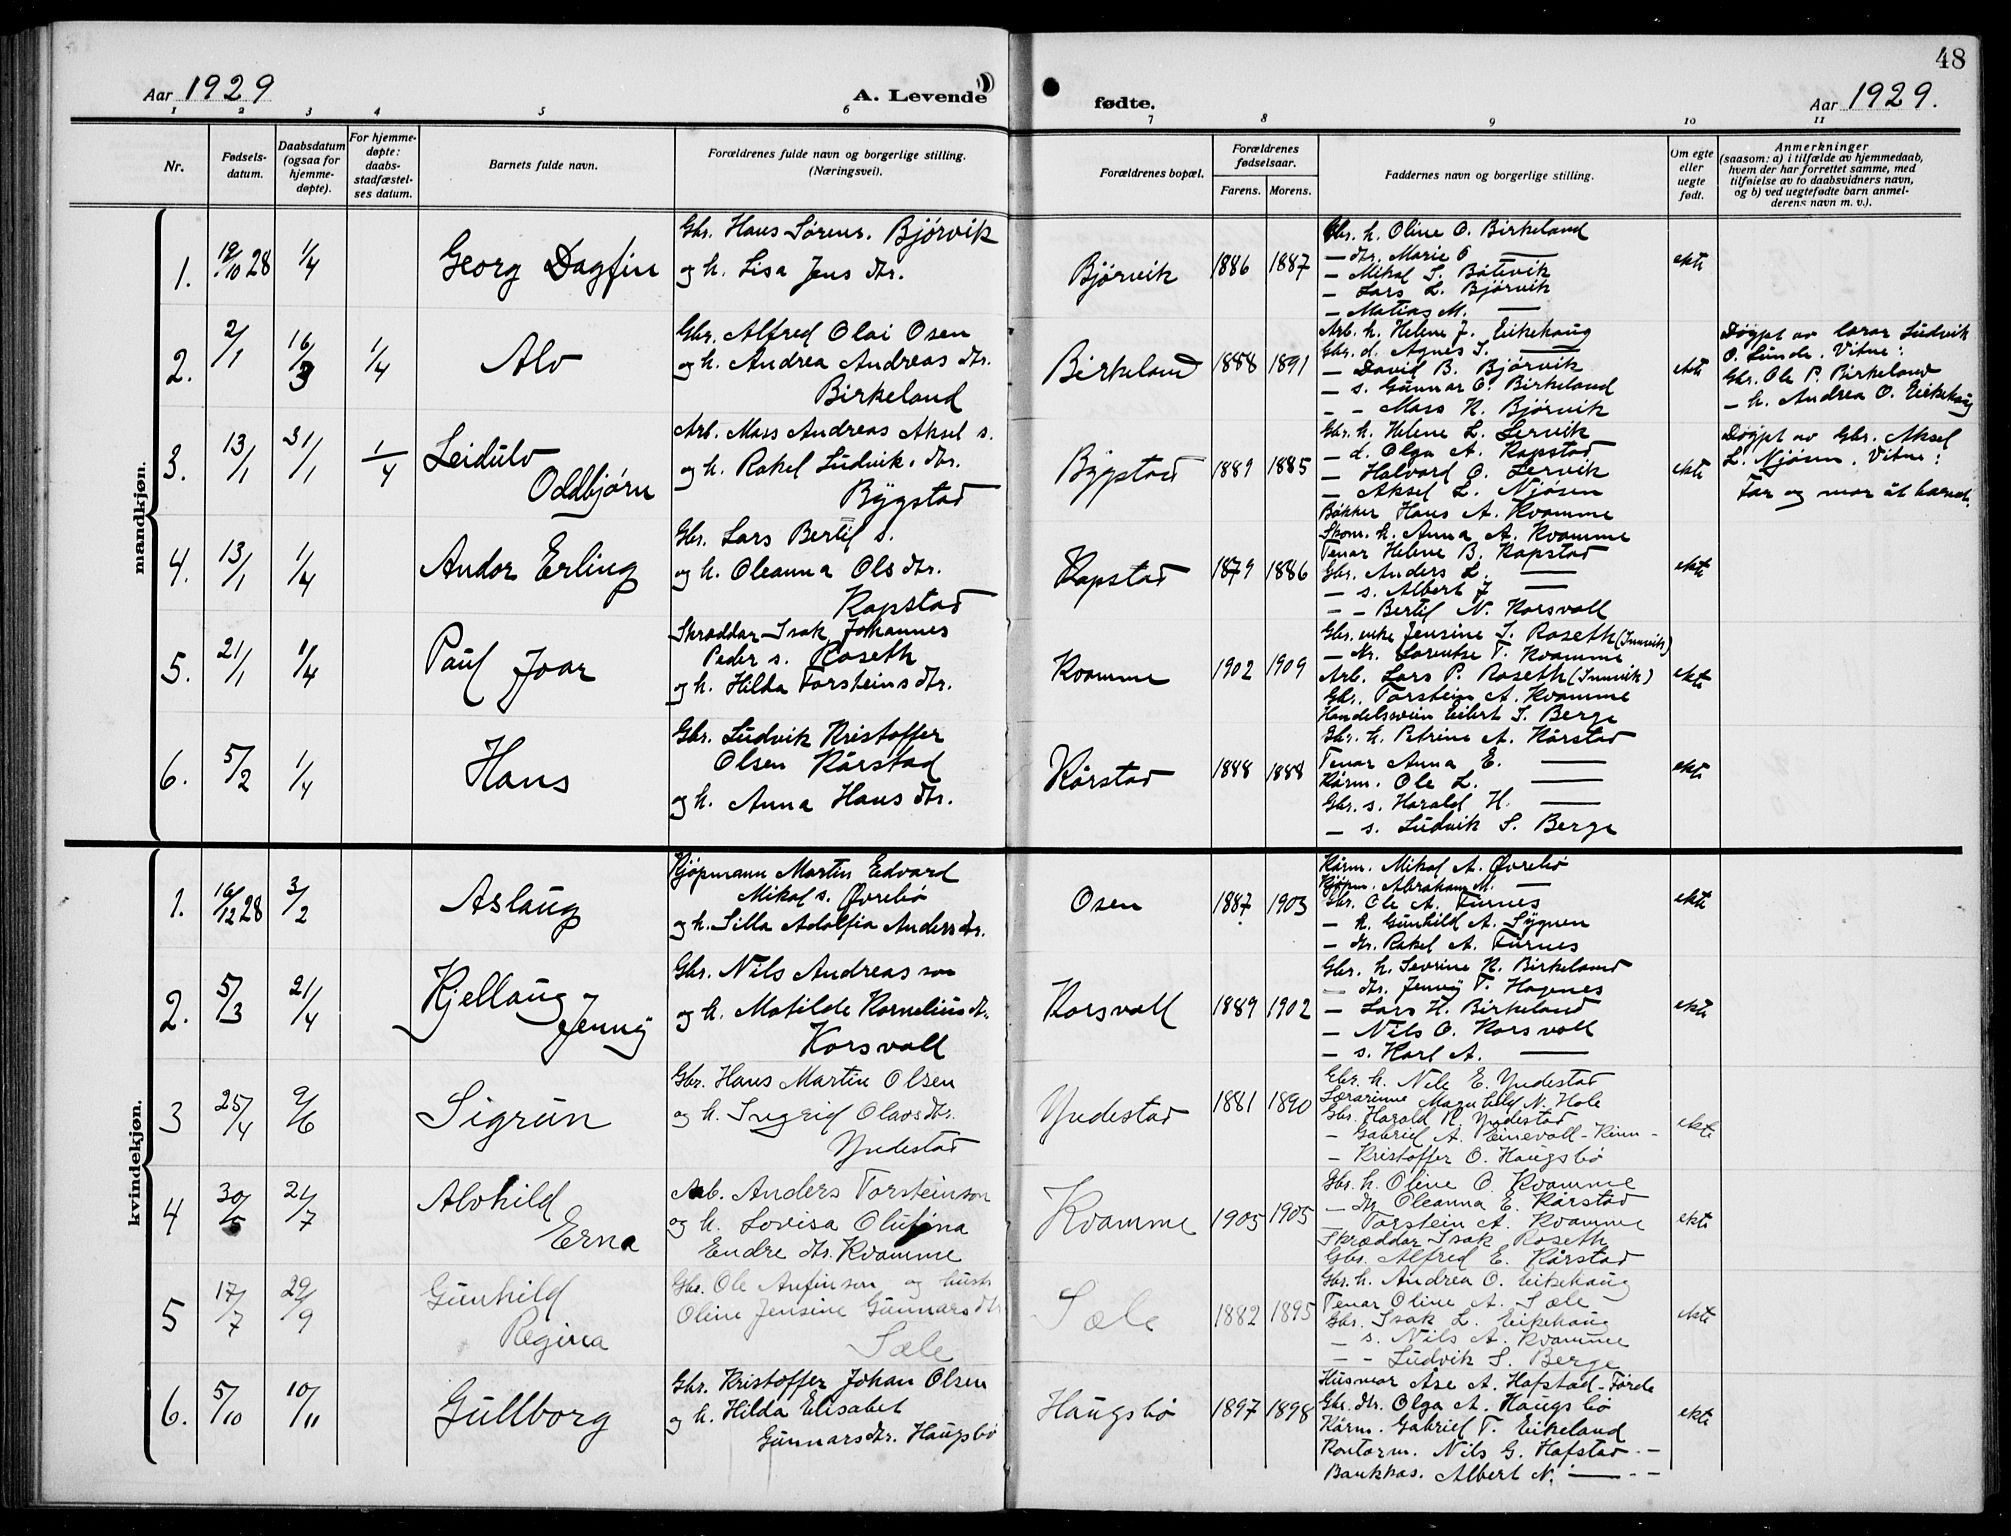 48
Aar 1929
A. Levende fødte.
Aar 1929.
1 2 3 4 5 6 7 8 9 10 11
Nr.
Fødsels-
datum.
Daabsdatum
(ogsaa for
hjemme-
døpte).
For hjemme-
døpte:
daabs-
stadfæstel-
ses datum.
Barnets fulde navn.
Forældrenes fulde navn og borgerlige stilling.
(Næringsvei).
Forældrenes bopæl.
Forældrenes
fødselsaar.
Farens. Morens.
Faddernes navn og borgerlige stilling.
Om egte
eller
uegte
født.
Anmerkninger
(saasom: a) i tilfælde av hjemmedaab,
hvem der har forrettet samme, med
tilføielse av to daabsvidners navn,
og b) ved uegtefødte barn anmel-
derens navn m. v.).
mandkjøn.
1. 19/10 28 1/4 Georg Dagfin
Gbr. Hans Sørens. Bjørvik
og h. Lisa Jens dtr.
Bjørvik 1886 1887
Gbr. h. Oline O. Birkeland
— dtr. Marie O —
— Mikal S. Båtevik
— Lars L. Bjørvik
— Matias M. —
ekte
2. 2/1 16/3 1/4 Alv
Gbr. Alfred Olai Osen
og h. Andrea Andreas dtr.
Birkeland
Birkeland 1888 1891
Arb. h. Helene J. Eikehaug
Gbr. d. Agnes S. —
— David B. Bjørvik
— s. Gunnar O. Birkeland
— - Mass N. Bjørvik
ekte
Døypt av lærar Ludvik
O. Lunde. Vitne:
Gbr. Ole P. Birkeland
— h. Andrea O. Eikehaug
3. 13/1 31/1 1/4 Leidulv
Oddbjørn
Arb. Mass Andreas Aksel s.
og h. Rakel Ludvik. dtr.
Bygstad
Bygstad 1889 1885
Gbr. h. Helene L. Lervik
— d. Olga A. Rapstad
— Halvard O. Lervik
— Aksel L. Njøsen
Bøkker Hans A. Kvamme
ekte
Døypt av Gbr. Aksel
L. Njøsen. Vitne:
Far og mor åt barnet.
4. 13/1 1/4 Andor Erling
Gbr. Lars Bertil s.
og h. Oleanna Ols dtr.
Rapstad
Rapstad 1879 1886
Skom. h. Anna A. Kvamme
Tenar Helene B. Rapstad
Gbr. Anders L. —
— s. Albert J —
— - Bertil N. Korsvoll
ekte
5. 21/1 1/4 Paul Joar
Skræddar Isak Johannes
Peder s. Roseth
og h. Hilda Torsteins dtr.
Kvamme 1902 1909
Gbr. enke Jensine S. Roseth (Innvik)
— dtr. Lorentse T. Kvamme
Arb. Lars P. Roseth (Innvik)
Gbr. Torstein A. Kvamme
Handelssvein Eilert S. Berge
ekte
6. 5/2 1/4 Hans
Gbr. Ludvik Kristoffer
Olsen Kårstad
og h. Anna Hans dtr.
Kårstad 1888 1888
Gbr. h. Petrine A. Kårstad
Tenar Anna E. —
Kårm. Ole L. —
Gbr. s. Harald H. —
— s. Ludvik S. Berge
ekte
kvindekjøn.
1. 16/12 28 3/2 Aslaug
Kjøpmann Martin Edvard
Mikal s. Øvrebø
og h. Silla Adolfia Anders dtr.
Osen 1887 1903
Kårm. Mikal A. Øvrebø
Kjøpm. Abraham M. —
Gbr. Ole A. Furnes
— h. Gunhild A. Sygnen
— dtr. Rakel A. Furnes
ekte
2. 5/3 21/4 Kjellaug
Jenny
Gbr. Nils Andreas son
og h. Matilde Kornelius dtr.
Korsvoll
Korsvoll 1889 1902
Gbr. h. Sevrine N. Birkeland
— dtr. Jenny T. Hagenes
— Lars H. Birkeland
— Nils O. Korsvoll
— s. Karl A. —
ekte
3 25/4 9/6 Sigrun
Gbr. Hans Martin Olsen
og h. Ingrid Olavs dtr.
Yndestad
Yndestad 1881 1890
Gbr. h. Nele E. Yndestad
Lærarinne Magnhild N. Hole
Gbr. Harald R. Yndestad
- Gabriel A. Einevoll - Kinn -
- Kristoffer O. Haugsbø
ekte
4 30/5 21/7 Alvhild
Erna
Arb. Anders Torsteinson
og h. Lovisa Olufina
Endre dtr. Kvamme
Kvamme 1905 1905
Gbr. h. Oline O. Kvamme
— dtr Oleanna E. Kårstad
— Torstein A. Kvamme
Skræddar Isak Roseth
Gbr. Alfred E. Kårstad
ekte
5 17/7 29/9 Gunhild
Regina
Gbr. Ole Anfinson og hustr
Oline Jensine Gunnars dtr
Sæle
Sæle 1882 1895
Gbr. h. Andrea O. Eikehaug
Tenar Oline A. Sæle
Gbr. Isak L. Eikehaug
— s. Nils A. Kvamme
— - Ludvik S. Berge
ekte
6. 5/10 10/11 Gullborg
Gbr. Kristoffer Johan Olsen
og h. Hilda Elisabet
Gunnars dtr. Haugsbø
Haugsbø 1897 1898
Husmor Åse A. Hafstad - Førde
Gbr. dtr. Olga A. Haugsbø
Kårm. Gabriel T. Eikeland
Kontorm. Nils G. Hafstad - —
Bankkas. Albert N. — - —
ekte